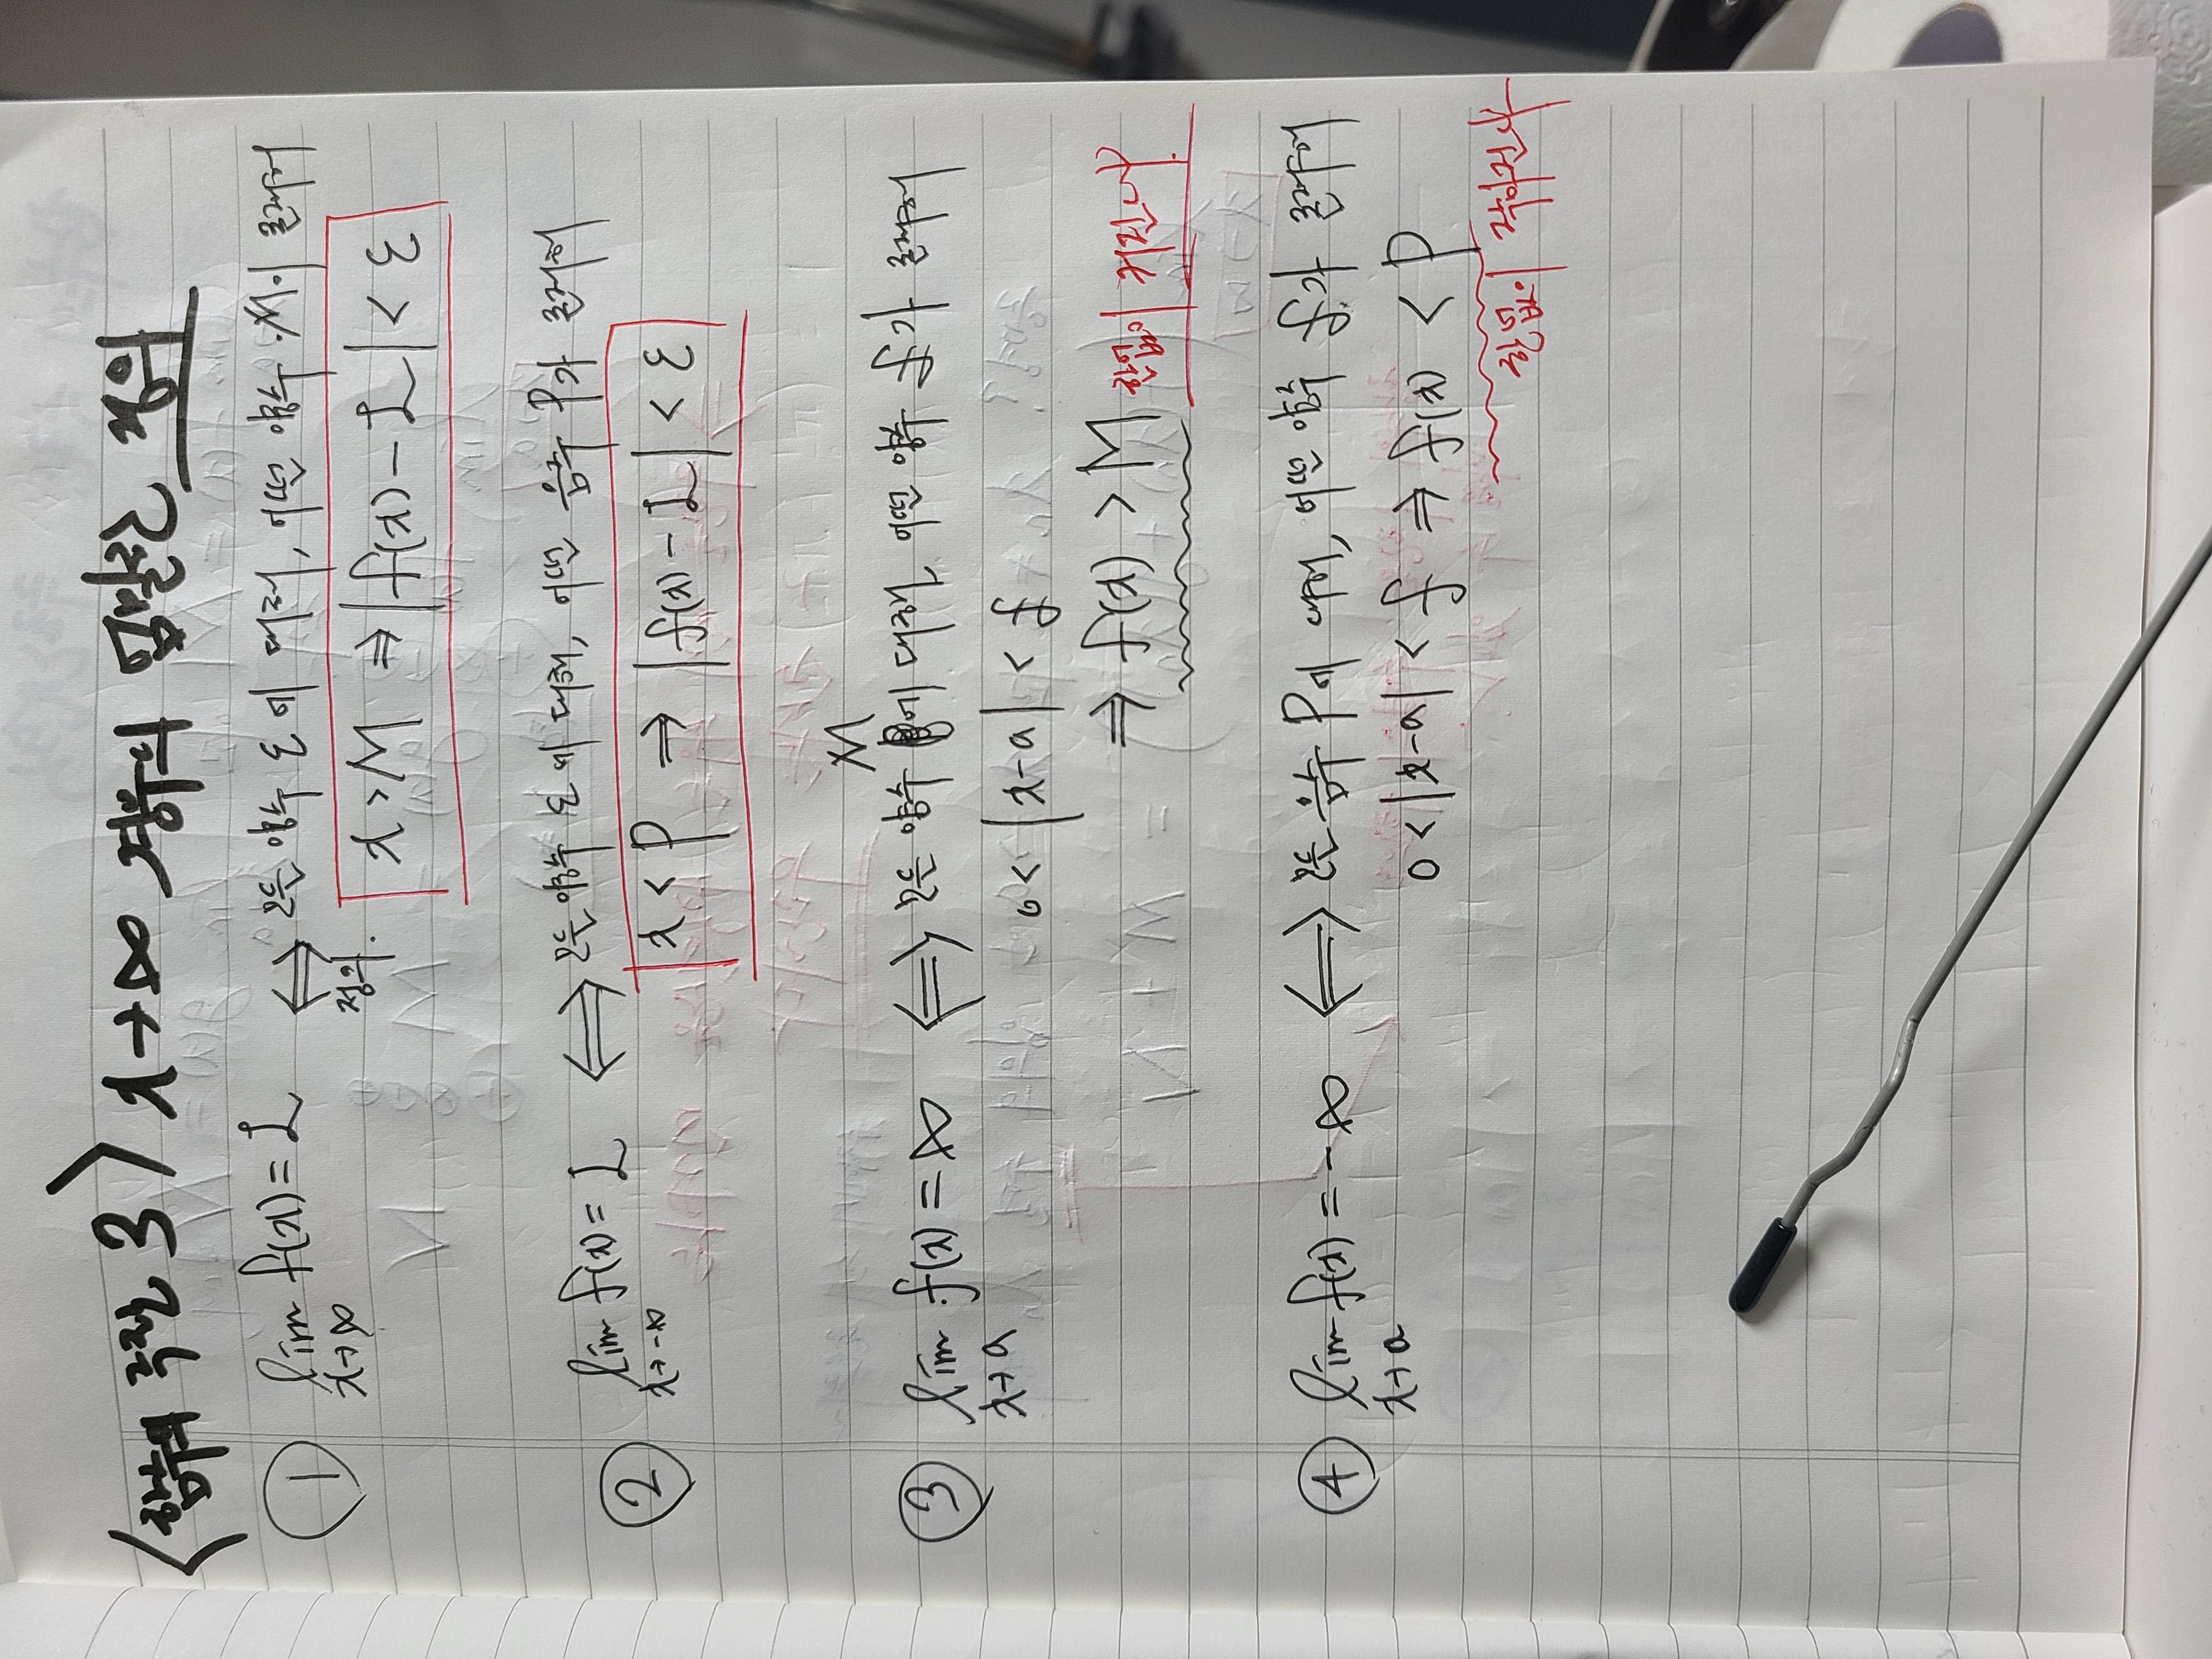 <함수의 극한 3> x→∞ 경우의 엄밀한 정의
① lim f(x) = L ⟺ 모든 양수 ε에 대해, 어떤 양수 M이 존재해
x→∞ 정의.
x > M ⇒ |f(x) - L| < ε
② lim f(x) = L ⟺ 모든 양수 ε에 대해, 어떤 음수 P가 존재해
x→-∞
x < P ⇒ |f(x) - L| < ε
M
③ lim f(x) = ∞ ⟺ 모든 양수 에 대해, 어떤 양수 δ가 존재해
x→a
0 < |x-a| < δ
⇒ f(x) > M 한없이 커진다.
④ lim f(x) = -∞ ⟺ 모든 음수 P에 대해, 어떤 양수 δ가 존재해
x→a
0 < |x-a| < δ ⇒ f(x) < P
한없이 작아진다